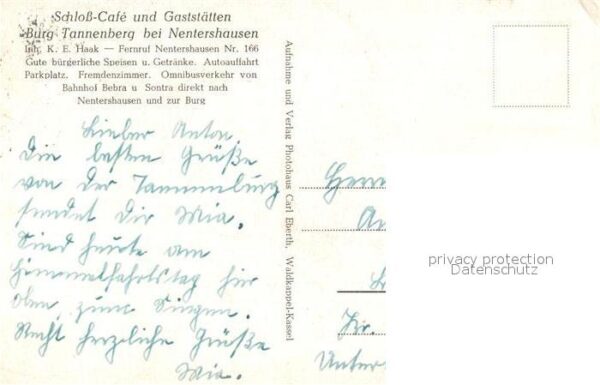 Schloß-Café und Gaststätten
Burg Tannenberg bei Nentershausen
Inh. K. E. Haak — Fernruf Nentershausen Nr. 166
Gute bürgerliche Speisen u. Getränke. Autoauffahrt
Parkplatz. Fremdenzimmer. Omnibusverkehr von
Bahnhof Bebra u Sontra direkt nach
Nentershausen und zur Burg
Lieber Anton
Die besten Grüße
von der Tannenburg
sendet Dir Mia.
Sind heute am
Himmelfahrtstag hier
oben zum Singen.
Recht herzliche Grüße
Mia.
Aufnahme und Verlag Photohaus Carl Eberth, Waldkappel-Kassel
An
Kr.
Unter
privacy protection
Datenschutz